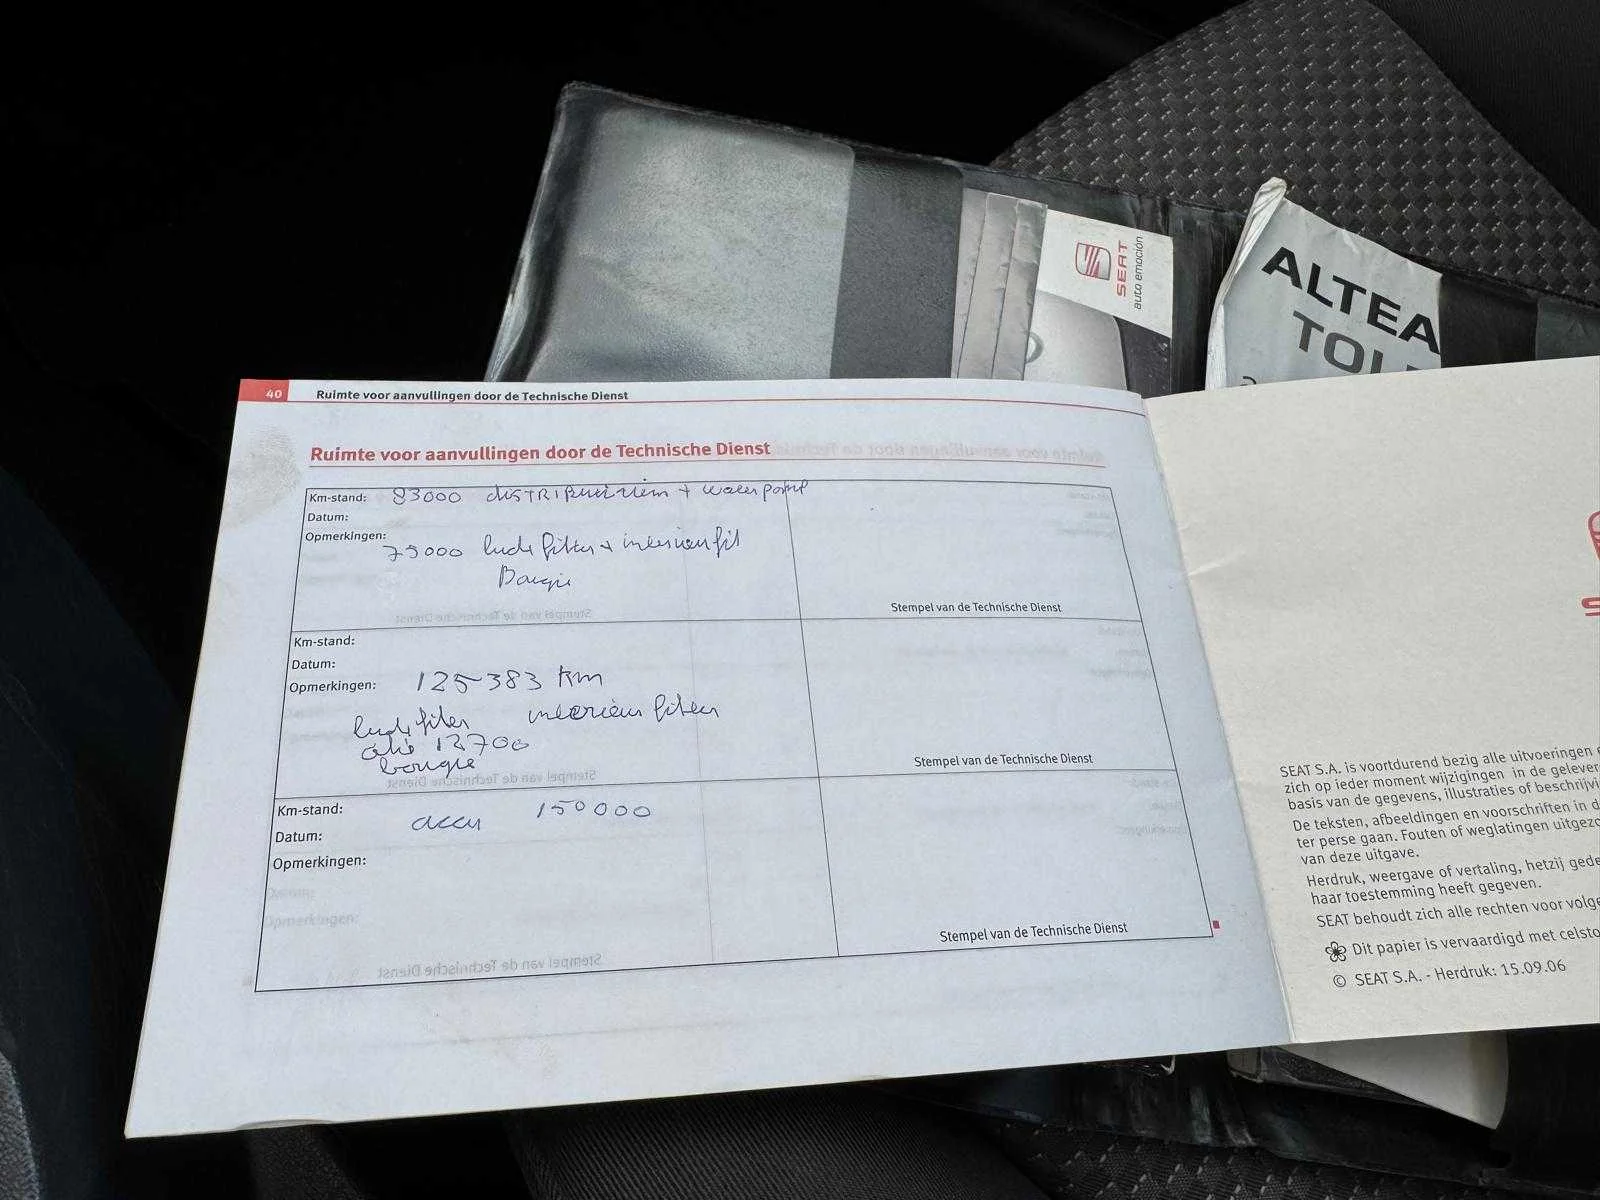 SEAT
auto emoción
ALTEA
TOL
40 Ruimte voor aanvullingen door de Technische Dienst
Ruimte voor aanvullingen door de Technische Dienst
Km-stand: 83000 + waterpomp
Datum:
Opmerkingen:
75000 filter + interieurfil
Bougie
Stempel van de Technische Dienst
Km-stand:
Datum:
Opmerkingen: 125383 km
filter interieur filter
olie 12700
bougie
Stempel van de Technische Dienst
Km-stand: accu 150000
Datum:
Opmerkingen:
Stempel van de Technische Dienst
SEAT S.A. is voortdurend bezig alle uitvoeringen
zich op ieder moment wijzigingen in de gelever
basis van de gegevens, illustraties of beschrijvi
De teksten, afbeeldingen en voorschriften in d
ter perse gaan. Fouten of weglatingen uitgezo
van deze uitgave.
Herdruk, weergave of vertaling, hetzij gede
haar toestemming heeft gegeven.
SEAT behoudt zich alle rechten voor volge
Dit papier is vervaardigd met celsto
© SEAT S.A. - Herdruk: 15.09.06